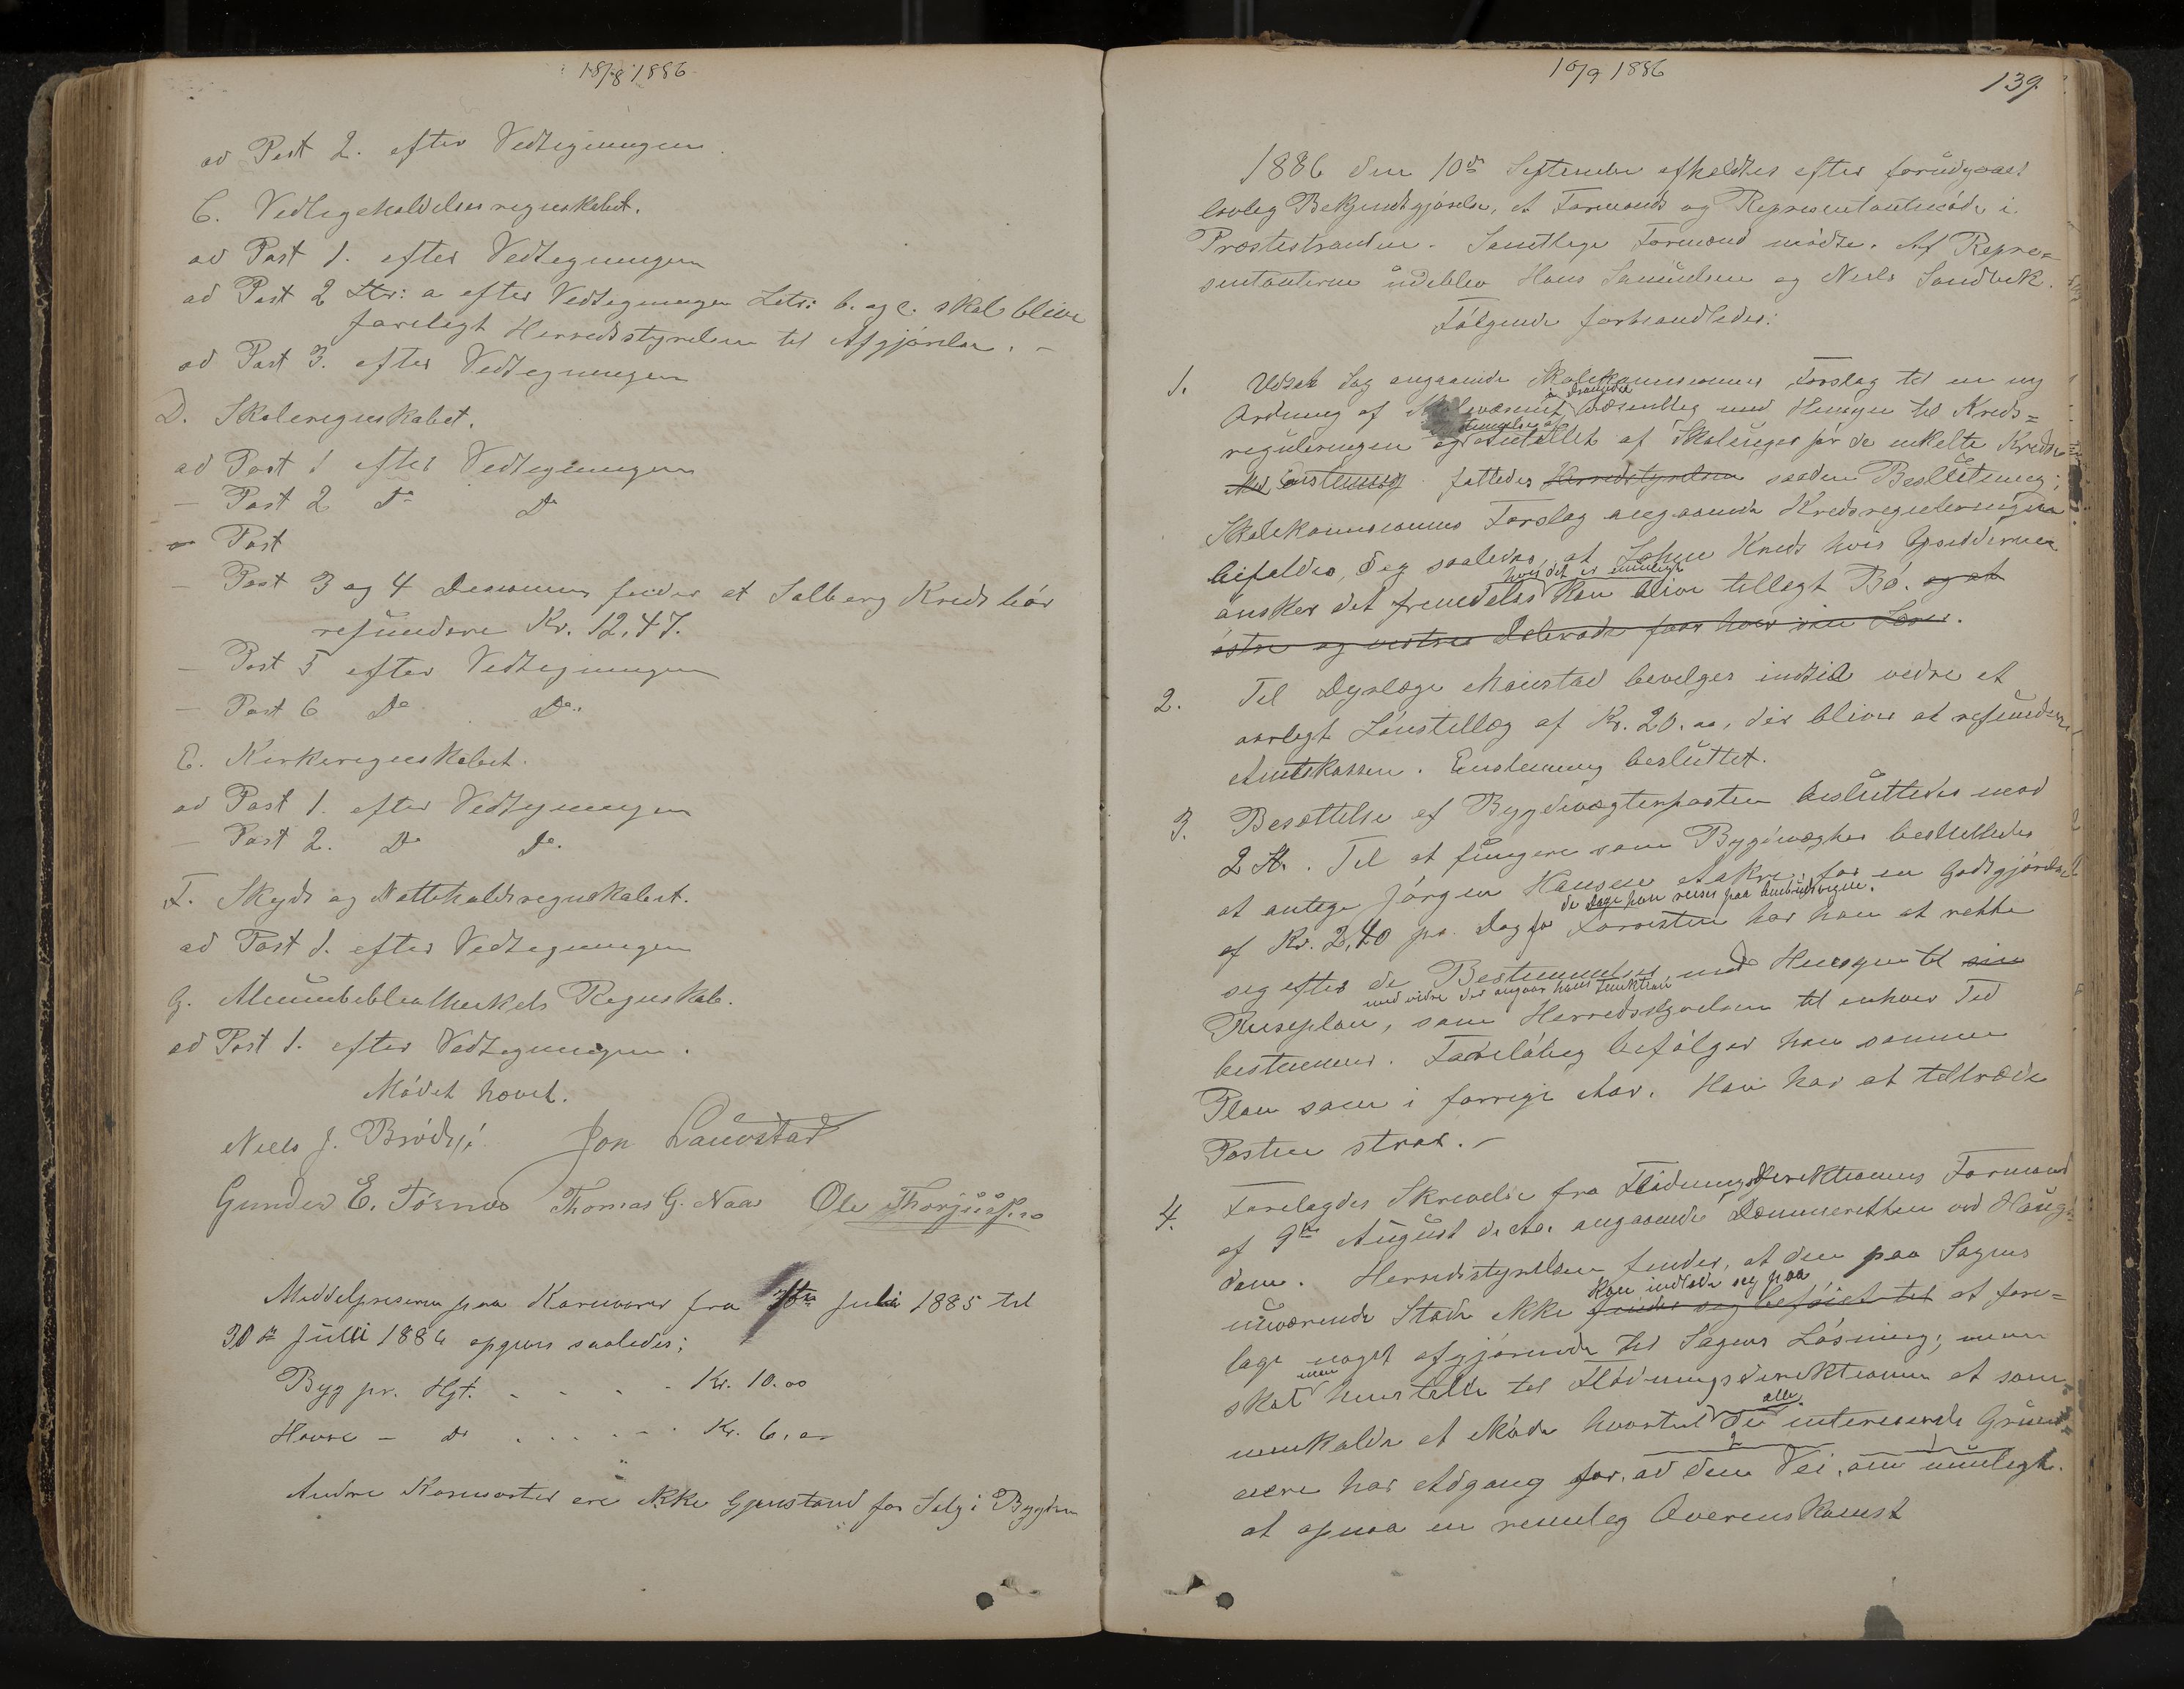 18/8 1886
ad Post 2. efter Vedtegningen.
C. Vedligeholdelsesregnskabet.
ad Post 1. efter Vedtegningen
ad Post 2 Ltr: a efter Vedtegningen Litr: b. og c. skal blive
forelagt Herredsstyrelsen til Afgjörelse. -
ad Post 3. efter Vedtegningen
D. Skoleregnskabet.
ad Post 1 efter Vedtegningen
- Post 2 Do Do
- Post
- Post 3 og 4 Decisionen finder at Solberg Kreds bör
refundere Kr. 12,47.
- Post 5 efter Vedtegningen
- Post 6 Do Do.
E. Kirkeregnskabet.
ad Post 1. efter Vedtegningen
- Post 2. Do Do.
F. Skyds og Nattholdsregnskabet.
ad Post 1. efter Vedtegningen
G. Almuebibliothekets Regnskab.
ad Post 1. efter Vedtegningen.
Mödet hævet.
Niels J. Brödsjö Jon Lauvstad
Gunder E. Törnæs Thomas G. Naas Ole Thorjussen
Middelpriserne paa Kornvarer fra Juli 1885 til
30te Juli 1886 opgives saaledes:
Byg pr. Hgt. . . . . Kr. 10.00
Havre - Do . . . . . . Kr. 6.00
Andre Kornsorter ere ikke Gjenstand for Salg i Bygden
10/9 1886
139.
1886 den 10de September afholdtes efter forudgaaet
lovlig Bekjendtgjörelse, et Formands og Representantmöde i
Præstestranden. Samtlige Formænd mödte. Af Repre=
sentanterne udeblev Hans Samuelsen og Niels Sandbek.
Fölgende forhandledes:
1. Udsat Sag angaaende Skolekommisionens Forslag til en ny
Ordning af væsentlig med Hensyn til Kreds=
reguleringen og Antallet af Skoleuger for de enkelte Kredse
Med Enstemmig fattedes Herredsstyrelsen saadan Beslutning;
Skolekommisionens Forslag angaaende Kredsreguleringen
bifaldes, dog saaledes, at Kreds hvis Opsidderne
hvis det er muligt
önsker det fremdeles kan blive tillagt Bö. og at
östre og vestre faar hver sin Lærer.
2. Til Dyrlæge Moustad bevilges indtil videre et
aarligt Lönstillæg af Kr. 20.00, der bliver at refundere
Amtskassen. Enstemmig besluttet.
3. Besættelse af Bygdevægterposten besluttedes mod
2 St. Til at fungere som Bygdevægter besluttedes
at antage Jörgen Hansen Aakre, for en Godtgjörelse
de Dage han reiser paa Ombudsveiene.
af Kr. 2,40 pr. Dag for Forresten har han at rette
sig efter de Bestemmelser, med Hensyn til sin
med videre der angaar hans Funktion
Reiseplan, som Herredsstyrelsen til enhver Tid
bestemmer. Forelöbig befölger han samme
Plan som i forrige Aar. Han har at tiltræde
Posten strax. -
4. Forelagdes Skrivelse fra Flödningsdirektionens Formand
af 9de August d. Aa. angaaende Dammeretten ved Haug=
dam. Herredsstyrelsen finder, at den paa Sagens
kan indlade sig paa
nuværende Stade ikke finder sig beföiet til at fore=
tage noget afgjörende til Sagens Lösning; men
men
skal henstille til Flödningsdirektionen at sam=
alle
menkalde et Möde hvortil de interesserede Grund=
eiere har Adgang for, ad den Vei, om muligt.
at opnaa en rimelig Overenskomst